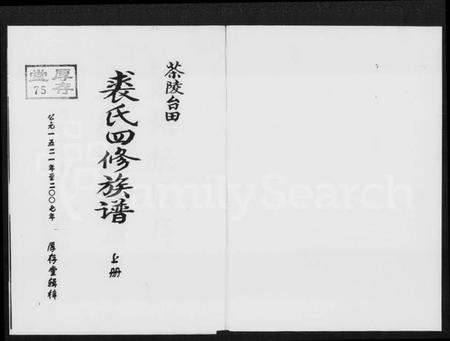 茶陵台田
裘氏四修族谱
上册
公元一五二一年至二〇〇七年
厚存堂辑梓
厚存堂
75
FamilySearch